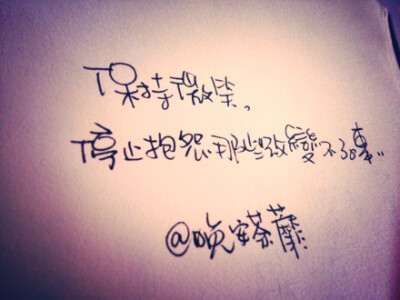 保持微笑。
停止抱怨那些改變不了的事..
@晚安荼蘼